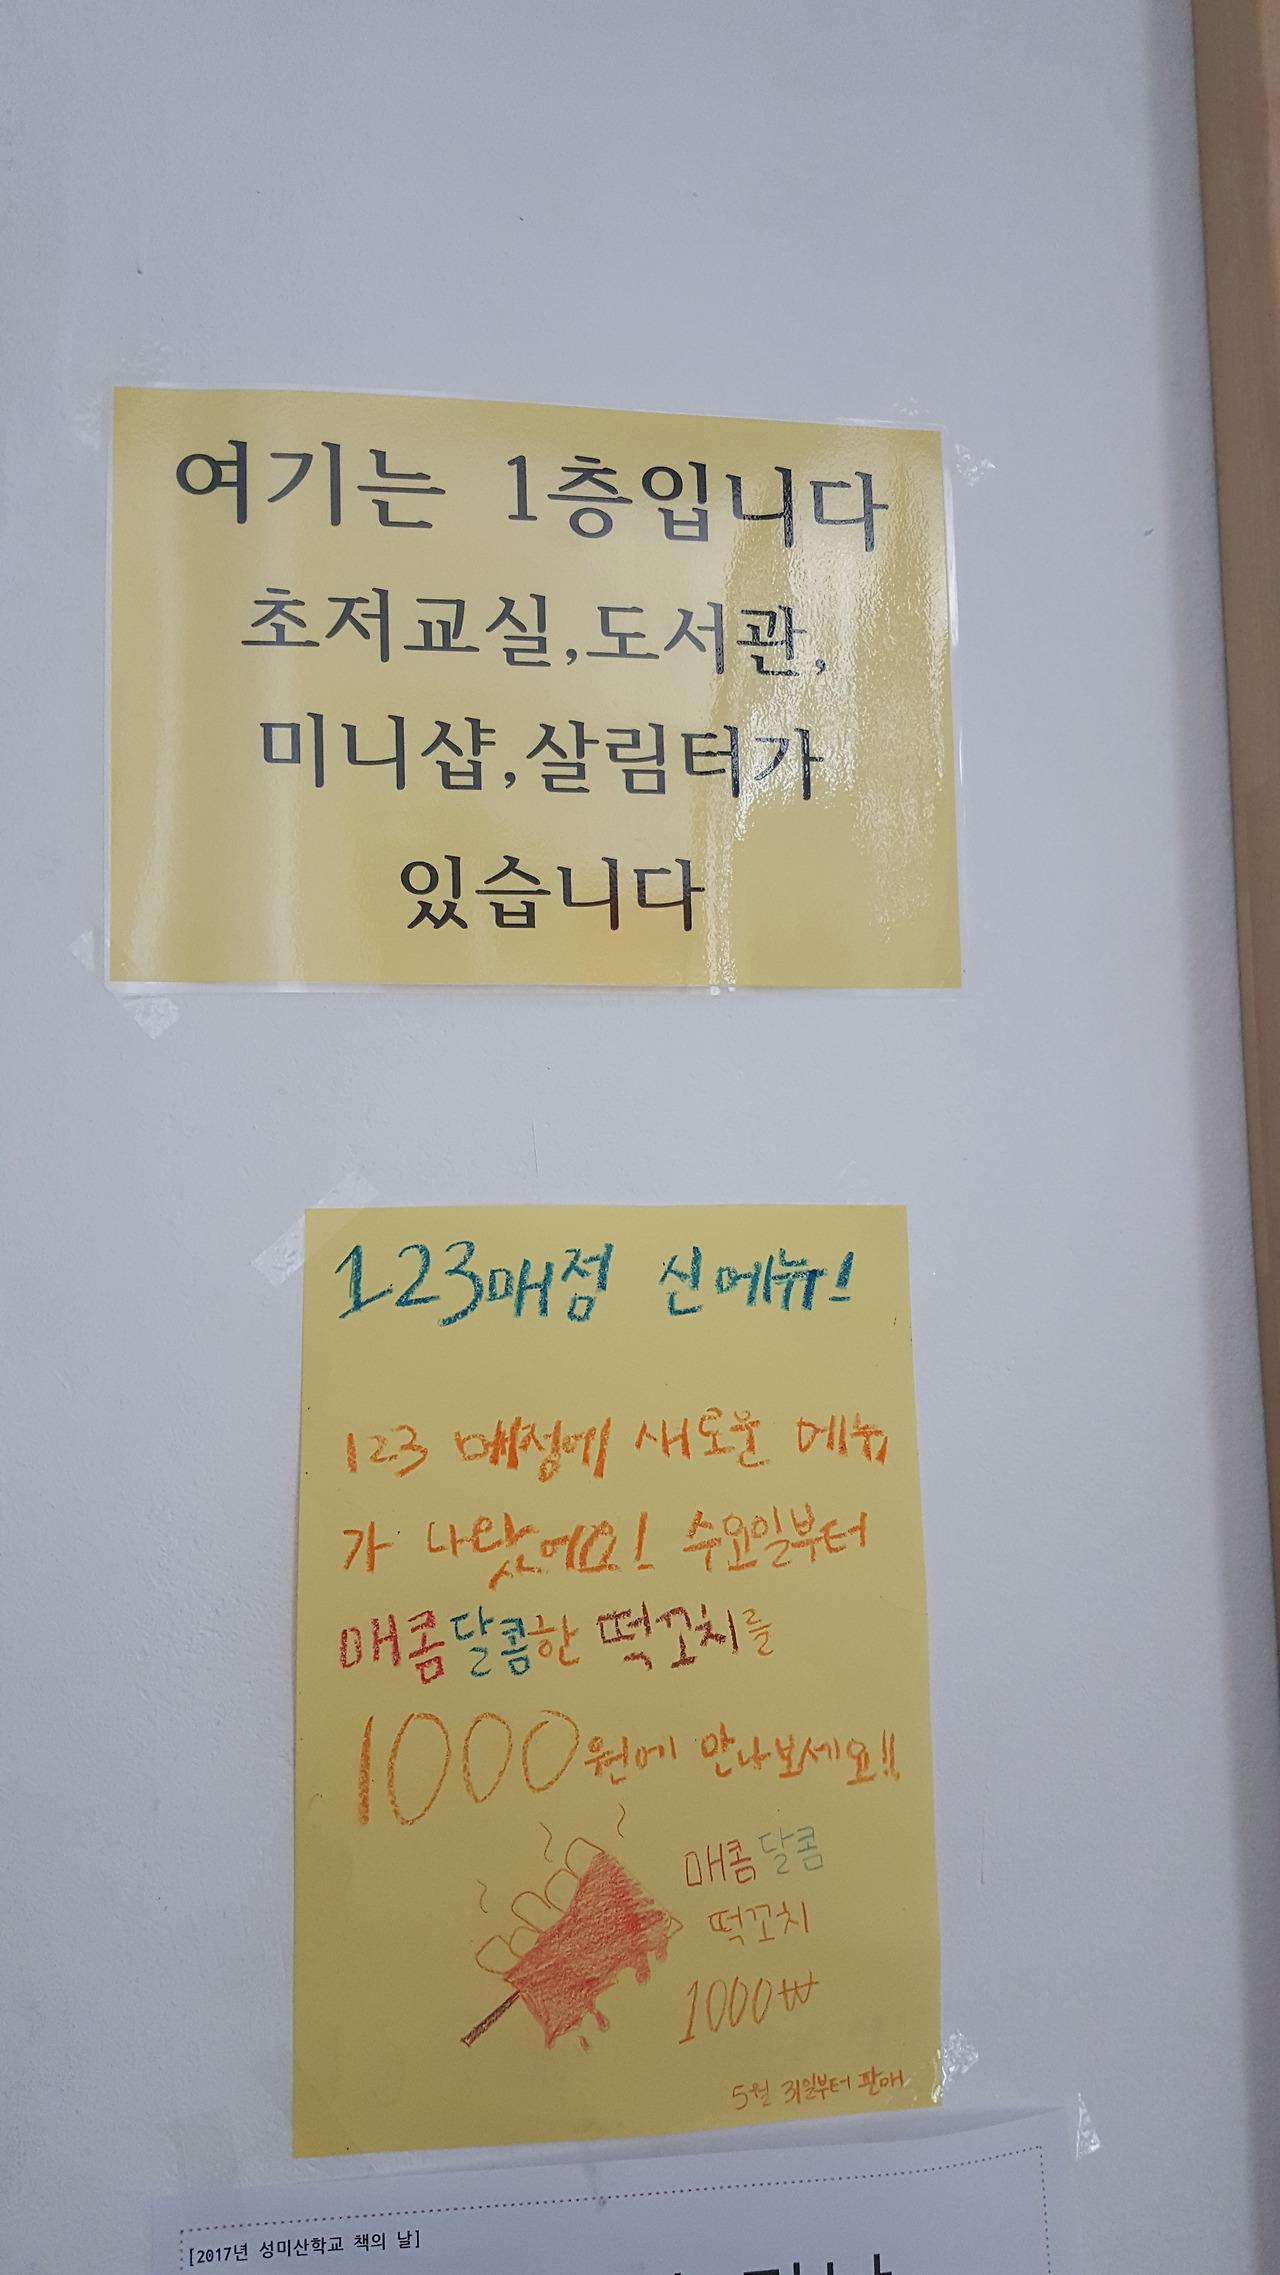 여기는 1층입니다
초저교실,도서관,
미니샵,살림터가
있습니다
123매점 신메뉴!
123 매점에 새로운 메뉴
가 나왔어요! 수요일부터
매콤달콤한 떡꼬치를
1000원에 만나보세요!!
매콤달콤
떡꼬치
1000₩
5월 31일부터 판매
[2017년 성미산학교 책의 날]